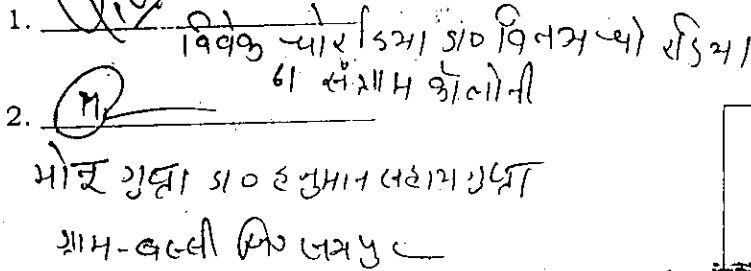 1.
विवेक चोरडिया S/O विनय चोरडिया
61 संग्राम कॉलोनी
2.
मोनू गुप्ता S/O हनुमान सहाय गुप्ता
ग्राम - बस्सी जिo जयपुर